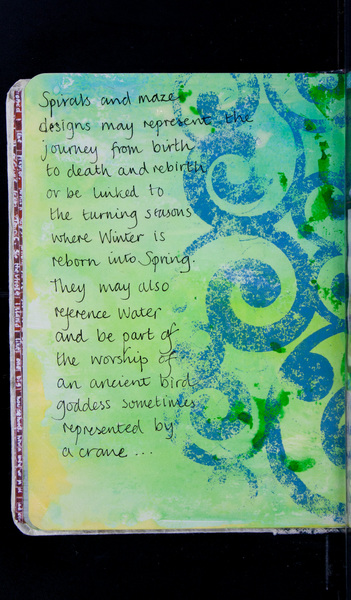 Spirals and maze
designs may represent the
journey from birth
to death and rebirth
or be linked to
the turning seasons
where Winter is
reborn into Spring.
They may also
reference Water
and be part of
the worship of
an ancient bird
goddess sometimes
represented by
a crane...